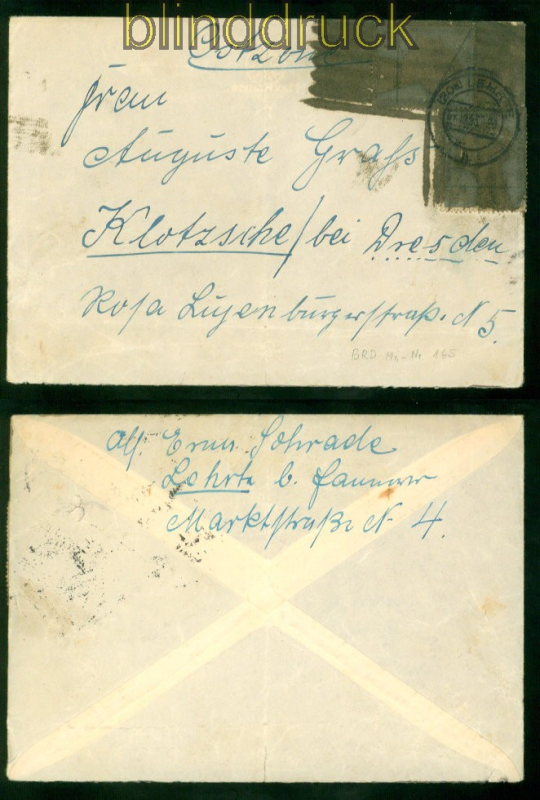 blinddruck
Ostzone
Frau
Auguste Grafs
Klotzsche/bei Dresden
Rosa Luxenburgerstraße. N 5.
BRD Mi-Nr. 165
Abs. Erna Schrade
Lehrte b. Hannover
Marktstraße N 4.